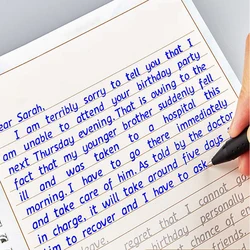 ear Sarah,
I am terribly sorry to tell you that I
am unable to attend your birthday party
next Thursday evening. That is owing to the
fact that my younger brother suddenly fell
ill and was taken to a hospital this
morning. I have to go there immediately
and take care of him. As told by the doctor
in charge, it will take around five days
him to recover and I have to ask
regret that I cannot
birthday personally
leave. chance of